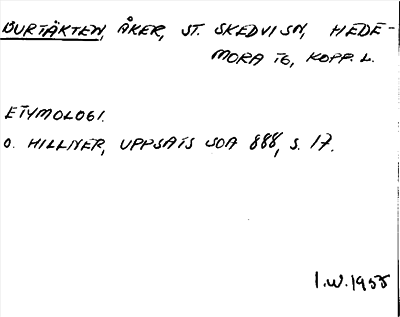 BURTÄKTEN, ÅKER, ST. SKEDVI SN, HEDE-
MORA TG, KOPP. L.
ETYMOLOGI.
O. HILLNER, UPPSATS SOA 888, S. 17.
I.W. 1955